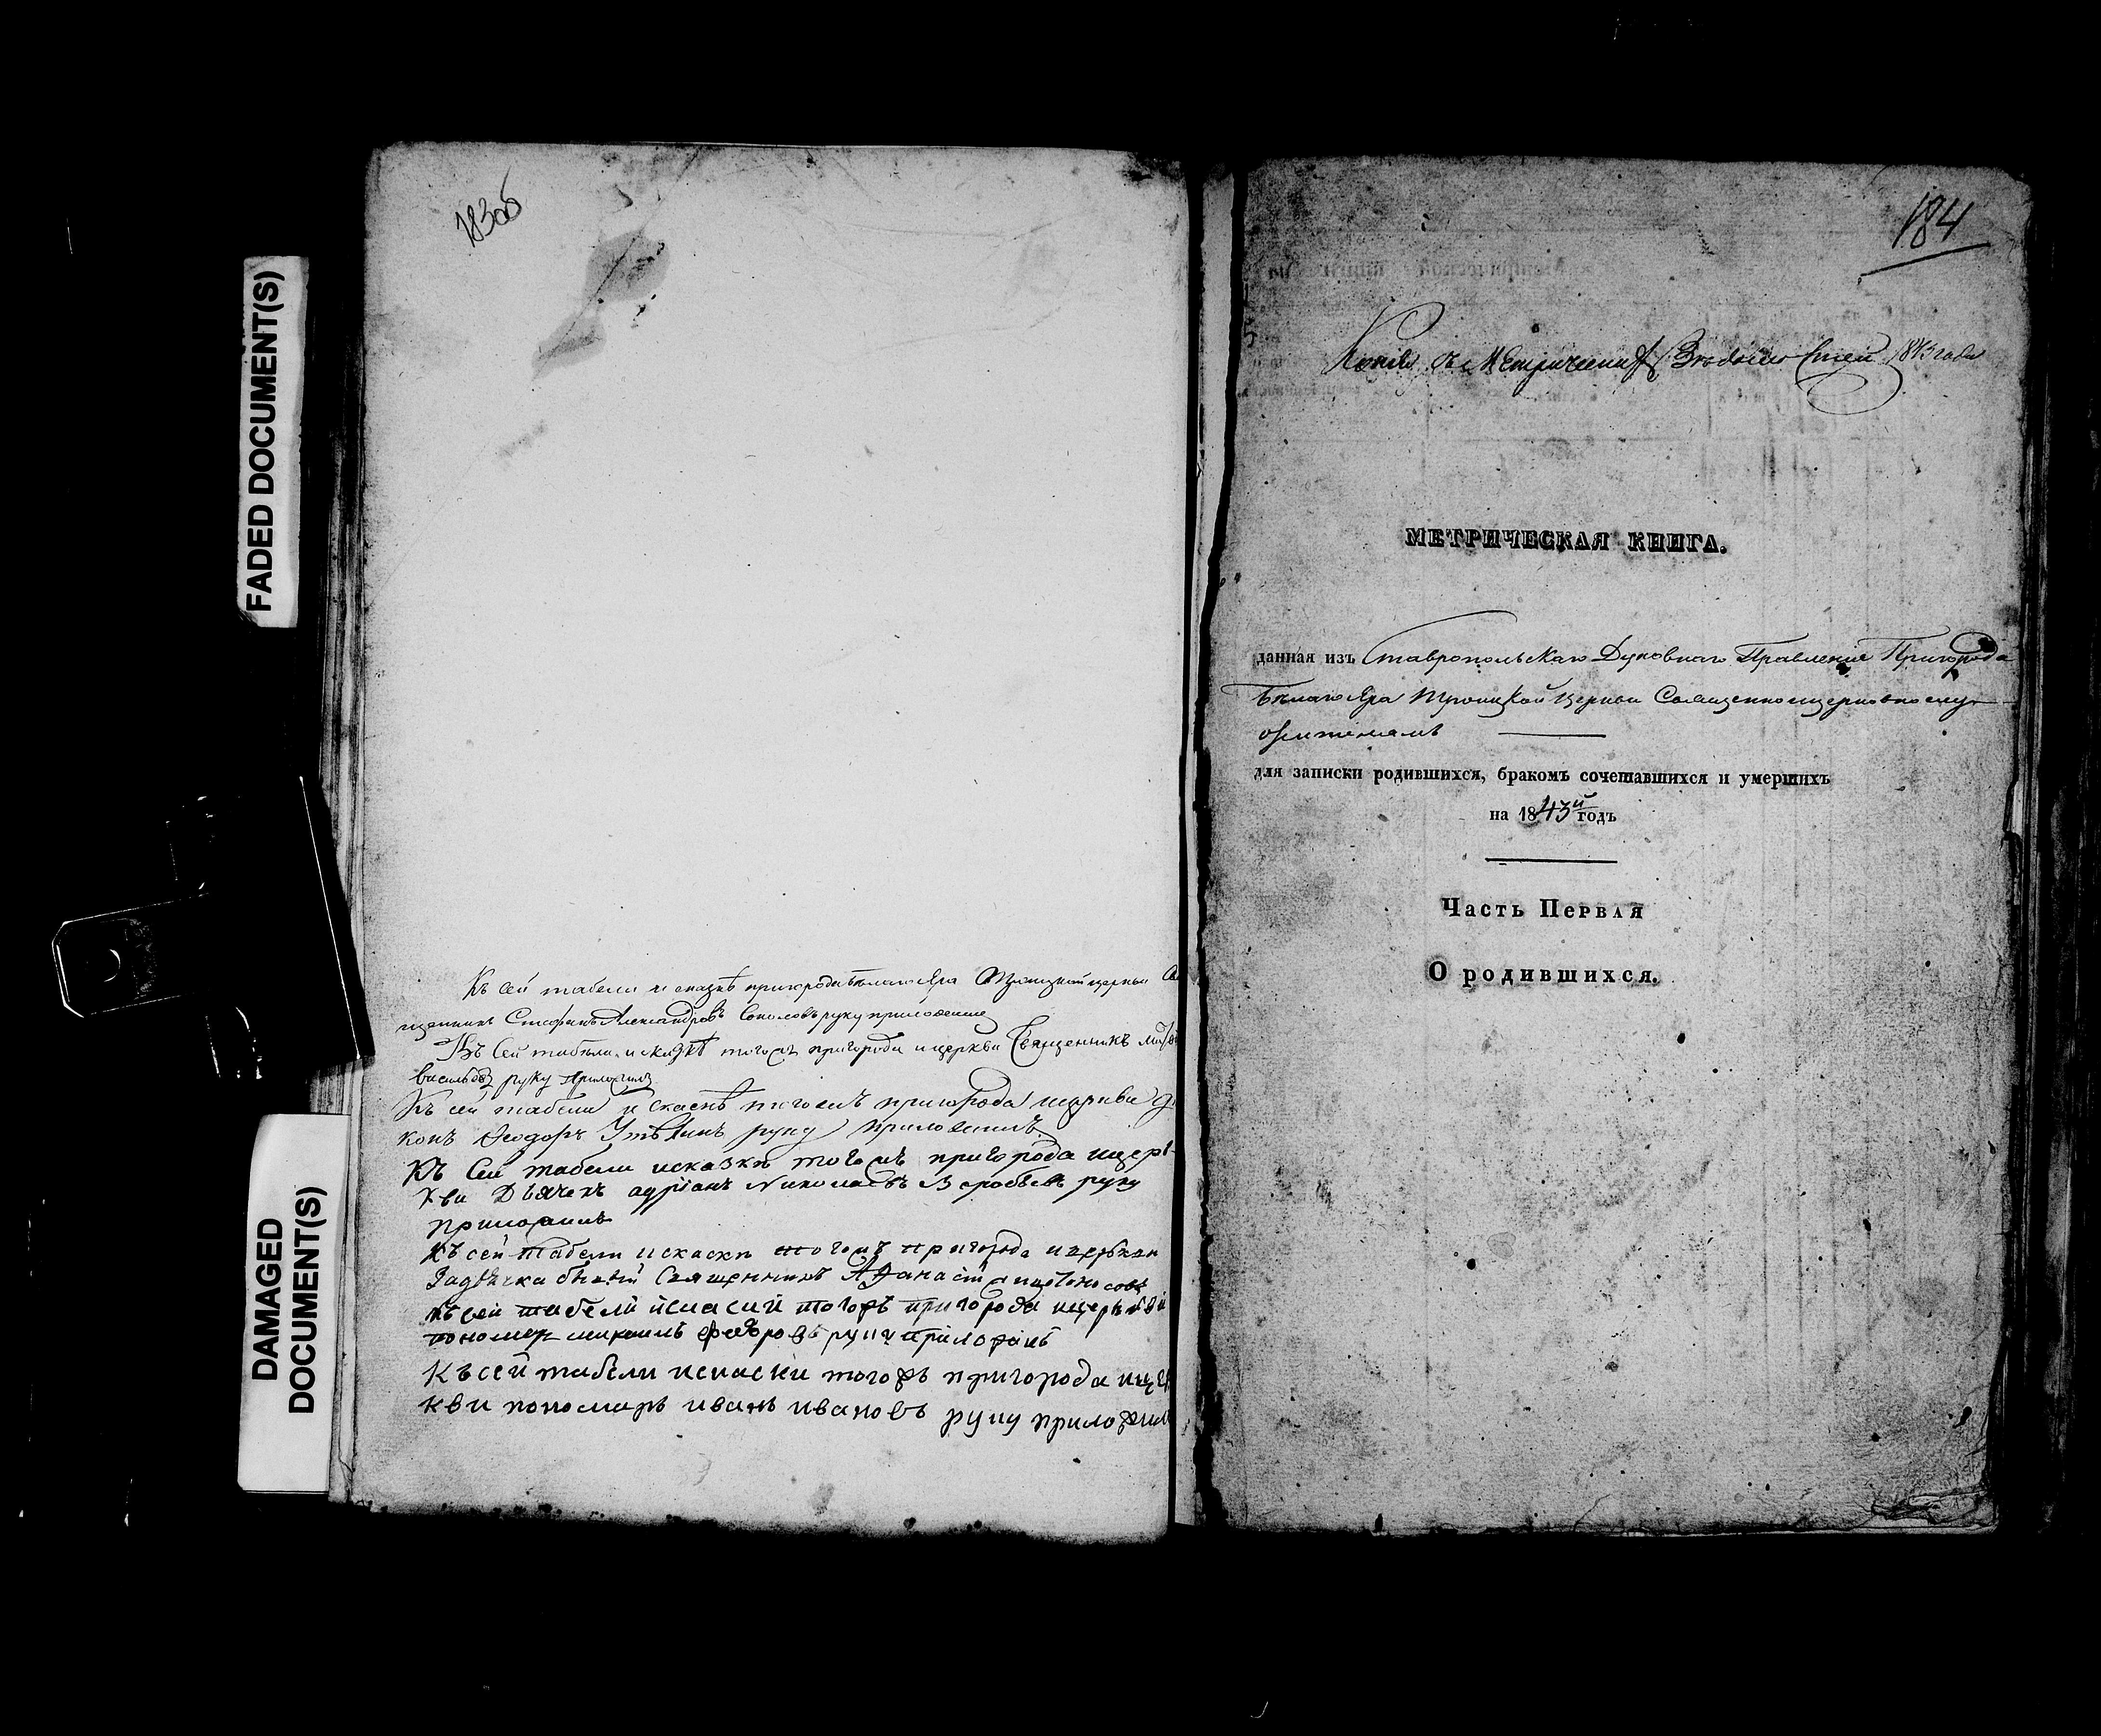 FADED DOCUMENT(S)
DAMAGED
DOCUMENT(S)
183об
Къ сей табели и сказкѣ пригорода Белаго Яра Троицкой церкви
щенникъ Стефанъ Александровъ Соколовъ руку приложилъ
Къ сей табели и сказкѣ тогожъ пригорода и церкви Священникъ
Васильевъ руку приложилъ
Къ сей табели и скаскѣ тогожъ пригорода и церкви
конъ Ѳеодоръ руку приложилъ
Къ сей табели исказкѣ тогожъ пригорода ицер
кви Дьячекъ адріанъ Николаевъ Воробьевъ руку
приложилъ
Къ сей табели искаски тогожъ пригорода ицеркви
Задьячка Священникъ Аѳанасій
къ сей табели искаски тогожъ пригорода ицеркви
пономарь михаилъ федоровъ руку приложилъ
Къ сей табели искаски тогожъ пригорода ице
кви пономарь иванъ ивановъ руку приложилъ
184
Копія съ Метрической 1843 года
МЕТРИЧЕСКАЯ КНИГА.
данная изъ Ставропольскаго Духовнаго Правленія Пригорода
Белаго Яра Троицкой церкви Священноицерковнослу
жителямъ
для записки родившихся, бракомъ сочетавшихся и умершихъ
на 1843й годъ
Часть Первая
О родившихся.